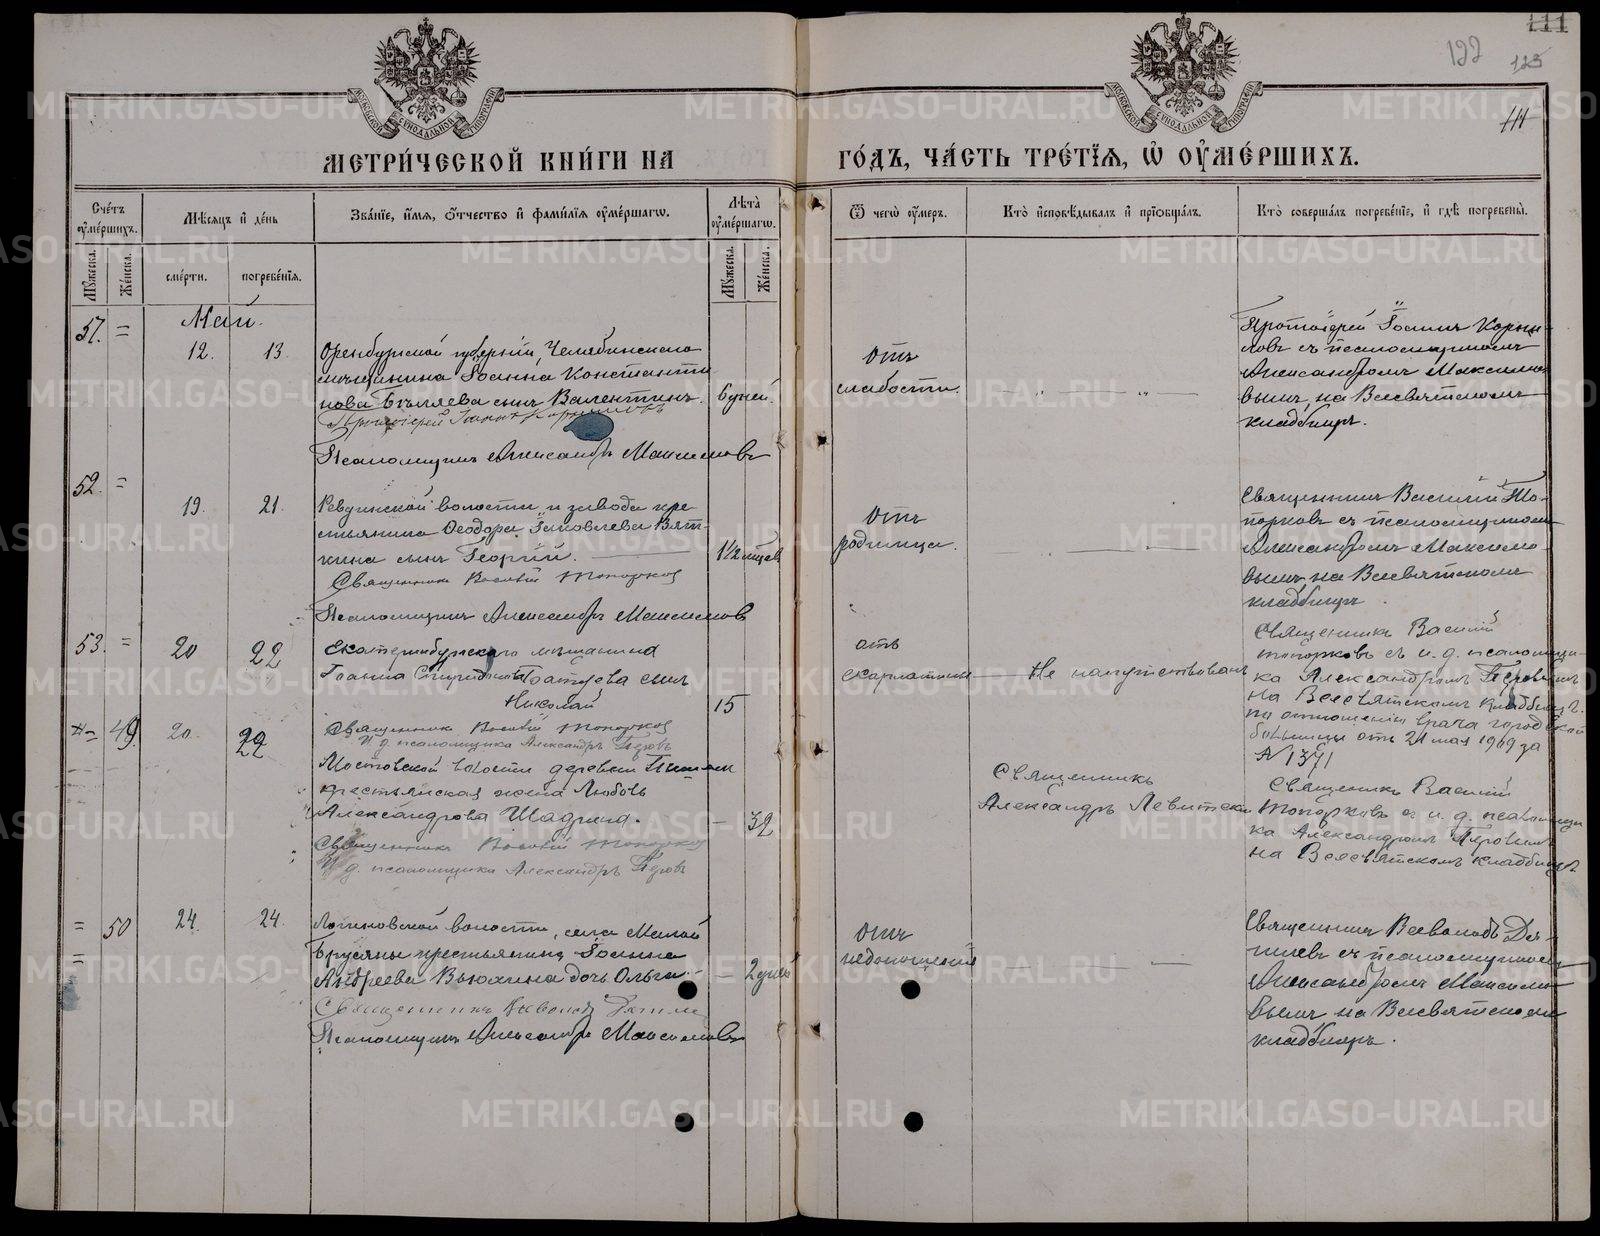 111
122
123
111
МЕТРИ́ЧЕСКОЙ КНИ́ГИ НА
ГО́ДЪ, ЧА́СТЬ ТРЕ́ТІѦ, Ѡ҆ ОУ҆МЕ́РШИХЪ.
Сче́тъ оу҆ме́ршихъ.
Мѣ́сяцъ и҆ де́нь
Зва́нїе, и҆́мѧ, ѻ҆́тчество и҆ фами́лїѧ оу҆ме́ршагѡ.
Лѣ́та оу҆ме́ршагѡ.
Ѿ чегѡ̀ оу҆́меръ.
Кто̀ и҆сповѣ́дывалъ и҆ прїѡбща́лъ.
Кто̀ соверша́лъ погребе́нїе, и҆ гдѣ̀ погребены̀.
Мꙋ́жеска.
Же́нска.
сме́рти.
погребе́нїѧ.
Мꙋ́жеска.
Же́нска.
Май.
51. =
12. 13.
Оренбургской губерніи, Челябинскаго
мѣщанина Іоанна Константи-
нова Бѣляева сынъ Валентинъ.
6 дней.
Протоіерей Іоаннъ
Псаломщикъ Александръ Максимовъ
отъ
слабости.
Протоіерей Іоаннъ
съ псаломщикомъ
Александромъ Максимо-
вымъ, на Всесвятскомъ
кладбищѣ.
52. =
19. 21.
Ревдинской волости и завода кре-
стьянина Ѳеодора Іаковлева Вят-
кина сынъ Георгій.
1½ мѣсяц
Священникъ Василій Топорковъ
Псаломщикъ Александръ Максимовъ
отъ
родимца.
Священникъ Василій То-
порковъ съ псаломщикомъ
Александромъ Максимо-
вымъ, на Всесвятскомъ
кладбищѣ.
53. =
20 22
Екатеринбургскаго мѣщанина
Іоанна Спиридонова сынъ
Николай
15
Священникъ Василій Топорковъ
И. д. псаломщика Александръ Перовъ
отъ
скарлатины
Не напутствованъ
Священникъ Василій
Топорковъ съ и. д. псаломщи-
ка Александромъ Перовымъ
на Всесвятскомъ кладбищѣ.
по отношенію врача городской
больницы отъ 21 мая 1909 за
№ 1371
= 49.
20. 22
Мостовской волости деревни
крестьянская жена Любовь
Александрова Шадрина.
32
Священникъ Василій Топорковъ
И. д. псаломщика Александръ Перовъ
Священникъ
Александръ Левитскій
Священникъ Василій
Топорковъ съ и. д. псаломщи-
ка Александромъ Перовымъ
на Всесвятскомъ кладбищѣ
= 50
24. 24.
Логиновской волости, села Малой
Брусяны крестьянина Іоанна
Андреева Вьюхина дочь Ольга.
2 дней
Священникъ Всеволодъ
Псаломщикъ Александръ Максимовъ
отъ
недоношенія
Священникъ Всеволодъ
съ псаломщикомъ
Александромъ Максимо-
вымъ, на Всесвятскомъ
кладбищѣ.
METRIKI.GASO-URAL.RU